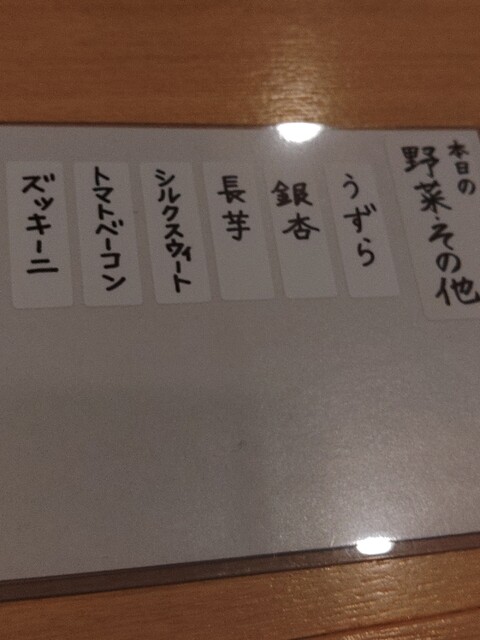 本日の
野菜・その他
うずら
銀杏
長芋
シルクスウィート
トマトベーコン
ズッキーニ